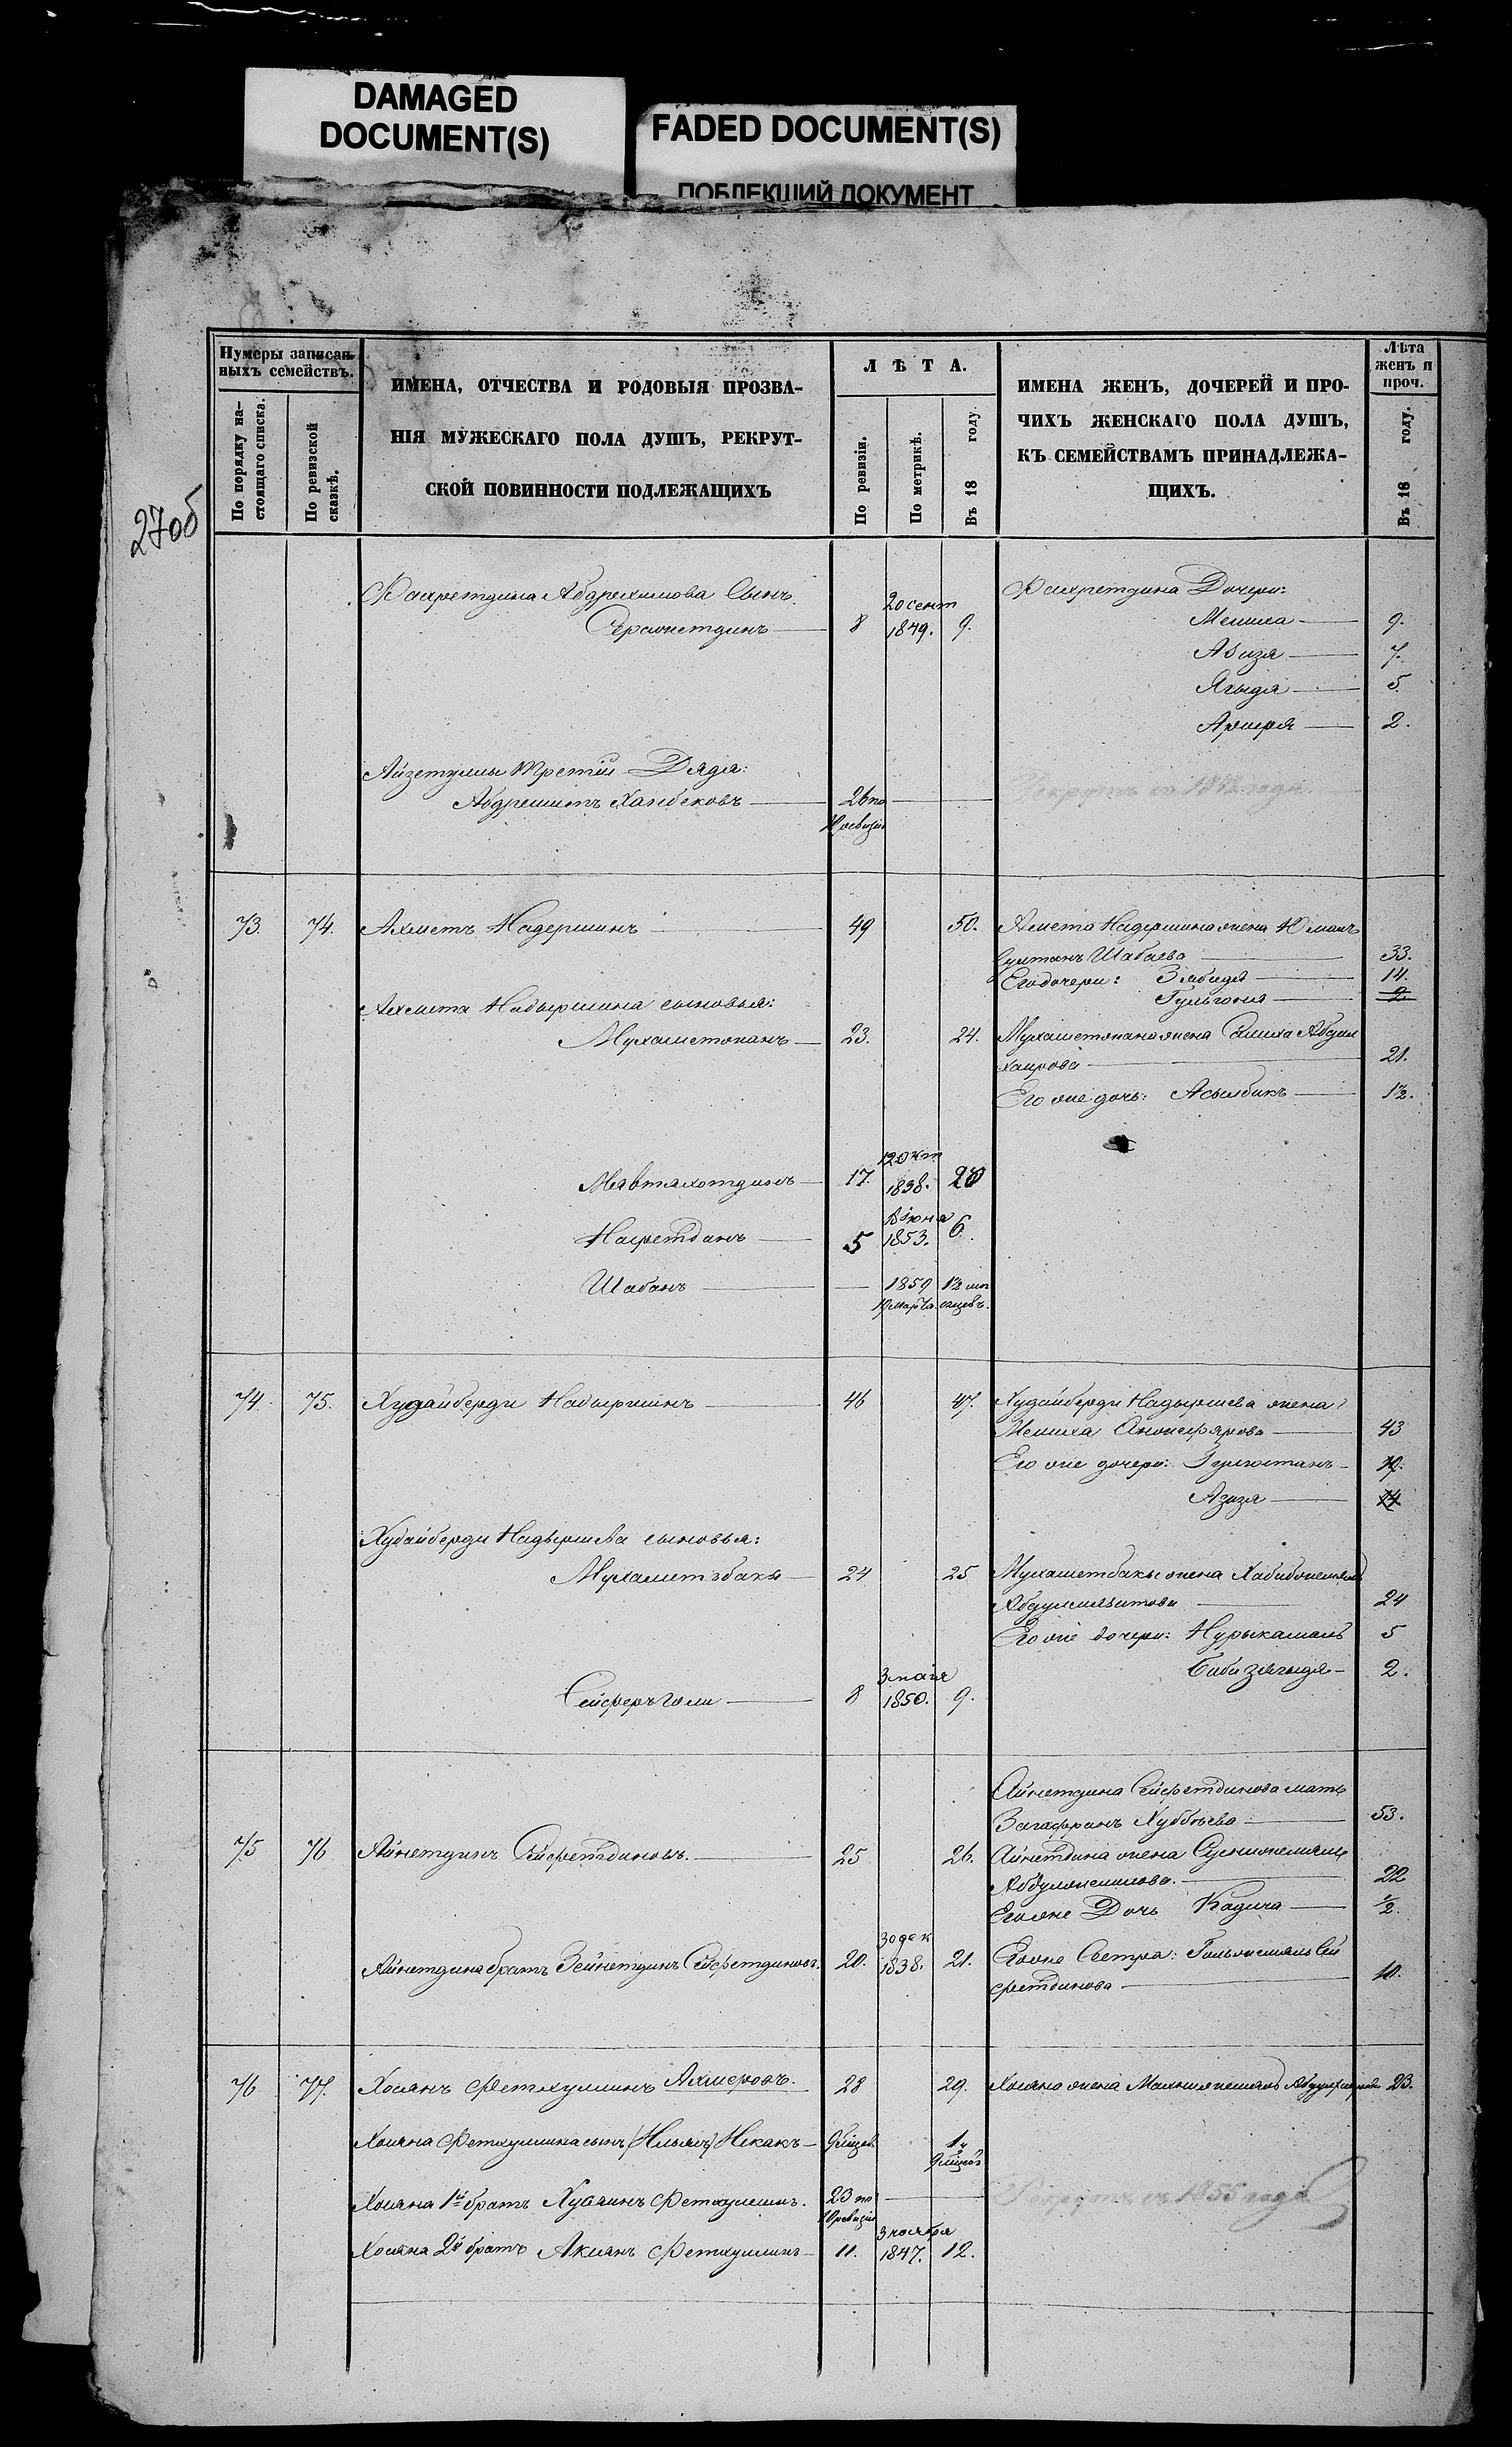 DAMAGED
DOCUMENT(S)
FADED DOCUMENT(S)
ПОБЛЕКШИЙ ДОКУМЕНТ
27об
Нумеры записан-
ныхъ семействъ.
По порядку на-
стоящаго списка.
По ревизской
сказкѣ.
ИМЕНА, ОТЧЕСТВА И РОДОВЫЯ ПРОЗВА-
НІЯ МУЖЕСКАГО ПОЛА ДУШЪ, РЕКРУТ-
СКОЙ ПОВИННОСТИ ПОДЛЕЖАЩИХЪ
ЛѢТА.
По ревизіи.
По метрикѣ.
Въ 18 году.
ИМЕНА ЖЕНЪ, ДОЧЕРЕЙ И ПРО-
ЧИХЪ ЖЕНСКАГО ПОЛА ДУШЪ,
КЪ СЕМЕЙСТВАМЪ ПРИНАДЛЕЖА-
ЩИХЪ.
Лѣта
женъ и
проч.
Въ 18 году.
Фахретдина Абдрехимова Сынъ
8 20 сент 1849. 9.
Фахретдина Дочери:
Мелиха 9.
Азизя 7.
Ягыдя 5
2.
Айзетуллы третій Дядя:
Абдрешитъ Ханбековъ 26 по
ревизіи
Рекрутъ съ 18 года
73. 74. Ахметъ Надершинъ 49 50. Ахмета Надершина жена Юман
султанъ Шабаева 33.
Его дочери: Зябидя 14.
Гульгоня 2.
Ахмета Надыршина сыновья:
Мухаметжанъ 23. 24. Мухаметжана жена Салиха Абдул
хаирова 21.
Его же дочь: Асылбикъ 1½.
Мявтяхотдинъ 17. 12 Окт 1838. 20
Насретдинъ 5 Іюня 1853. 6.
Шабанъ — 1859 1½ мѣ
19 марта сяцевъ.
74. 75. Худайберди Надыршинъ 46 47. Худайберди Надыршева жена
Мелиха 43
Его же дочери: Гулюстанъ
Азизя 14
Худайберди Надыршева сыновья:
Мухаметъбакы 24 25 Мухаметбакы жена
24
Его же дочери: Нурыкамалъ 5
Биби Зягыдя 2.
Сейферъгали 8 3 мая 1850. 9.
Айнетдина Сейфетдинова мать
Загафранъ Хуббеева 53.
75 76 Айнетдинъ Сейфетдиновъ. 25 26. Айнетдина жена
Абдулжелилова. 22
Его же Дочь Кадича ½.
Айнетдина братъ Зейнетдинъ Сейфетдиновъ. 20. 30 дек 1838. 21. Его же Сестра: Гольжемалъ Сей
фетдинова 10.
76 77. Хосянъ Фетхуллинъ Ахмеровъ. 28 29. Хосяна жена 23.
Хосяна Фетхуллина сынъ (Ильясъ) Искакъ 9 мѣцев. 1 и
9 мѣцевъ
Хосяна 1й братъ Хусяинъ Фетхуллинъ. 23 по
10 ревизіи
Рекрутъ съ 1855 года
Хосяна 2й братъ Аксянъ Фетхуллинъ 11. 3 ноября 1847. 12.